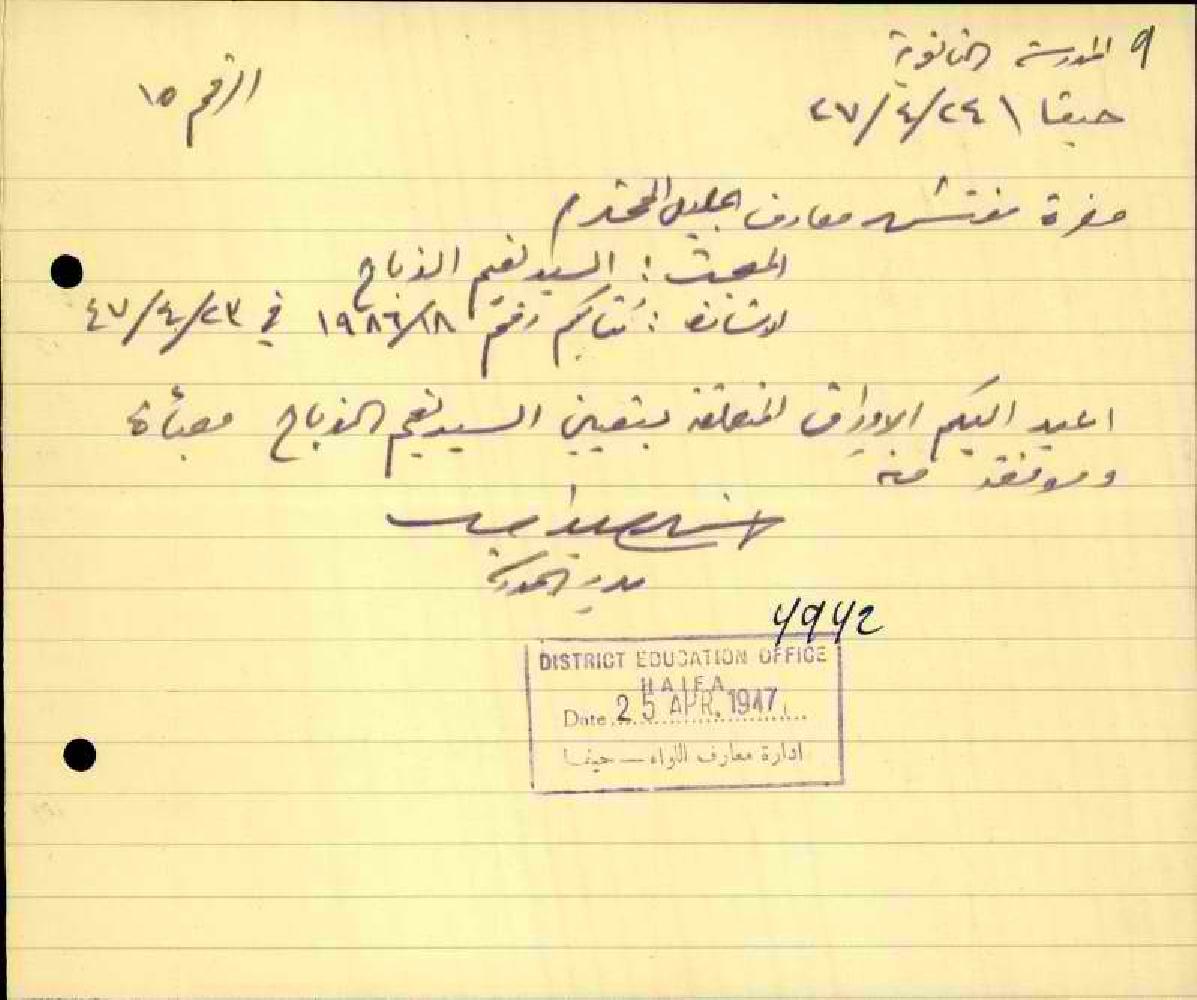 ٩ المدرسة الثانوية
الرقم ١٥
حيفا ٢٤/٤/٤٧
حضرة مفتش معارف الجليل المحترم
المبحث : السيد نعيم الذباح
الاشارة : كتابكم رقم ١٩٨٦/١٨ في ٢٣/٤/٤٧
اعيد اليكم الاوراق المتعلقة بتعيين السيد نعيم الذباح معبأة
وموقعة منه
مدير المدرسة
4942
DISTRICT EDUCATION OFFICE
HAIFA
Date 25 APR. 1947
ادارة معارف اللواء — حيفا